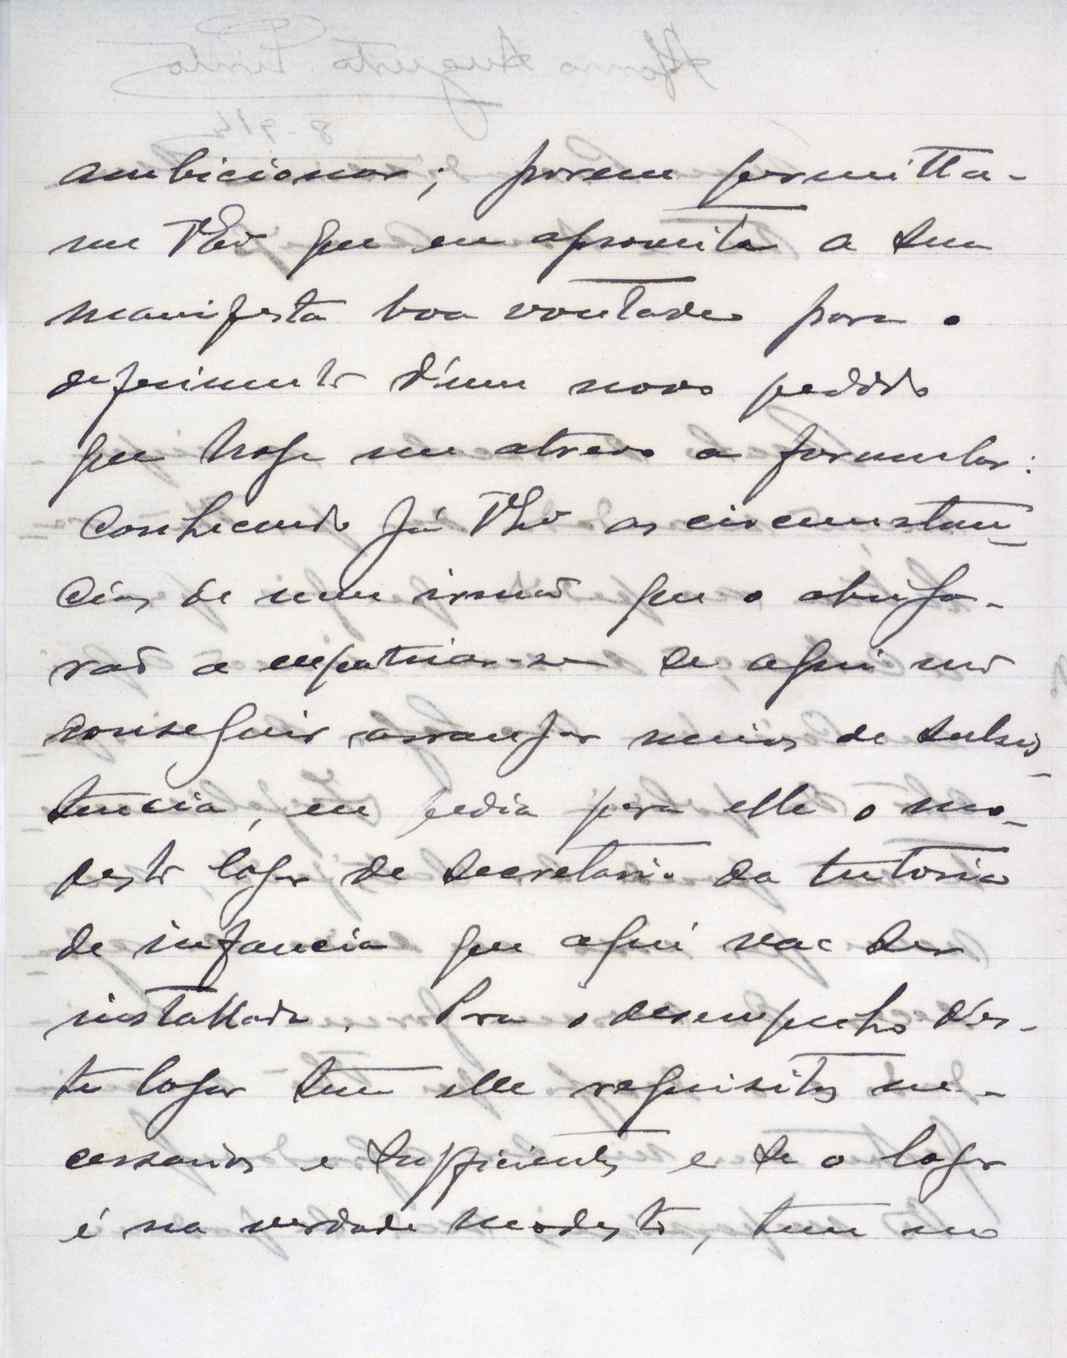 Affonso Augusto Pinto
8-914
ambicionar; porem permitta-
me VExª que eu aproveite a sua
manifesta boa vontade para o
deferimento d'um novo pedido
que hoje me atrevo a formular:
Conhecendo já VExª as circumstan-
cias de meu irmão que o obriga-
rão a expatriar-se se aqui não
conseguir arranjar meios de subsis-
tencia, eu pedia para elle o mo-
desto logar de secretario da tutoria
de infancia que aqui vae ser
installada. Para o desempenho d'es-
te logar tem elle requisitos ne-
cessarios e sufficientes e se o logar
é na verdade modesto, tem no